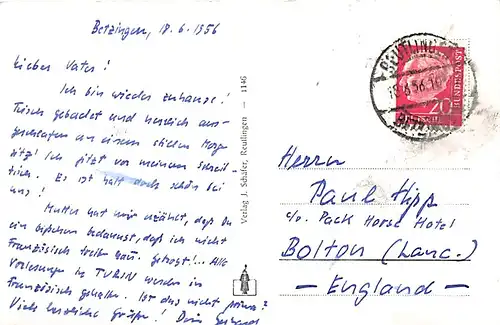 Betzingen, 18.6.1956
Lieber Vater!
Ich bin wieder zuhause!
Frisch gebadet und herrlich aus-
geschlafen an einem stillen
Ich sitze vor meinem Schreib-
tisch. Es ist halt doch schön bei
uns!
Mutter hat mir erzählt, daß Du
ein bißchen bedauerst, daß ich nicht
Französisch treibe Alle
Vorlesungen in TURIN werden in
Französisch gehalten. Ist das nicht prima?
Viele herzliche Grüße! Dein
Verlag J. Schäfer, Reutlingen — 1146
REUTLINGEN
18.8.56.16
20
BUNDESPOST
Herrn
Paul Hipp
c/o. Pack Horse Hotel
Bolton (Lanc.)
— England —